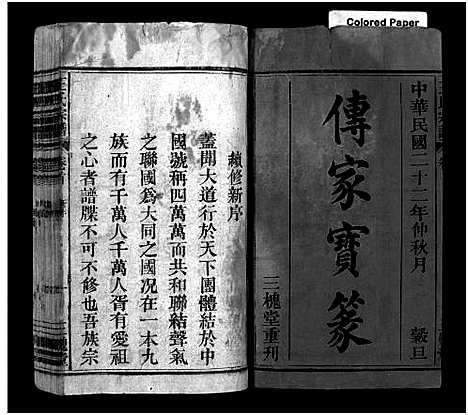 Colored Paper
中華民國二十二年仲秋月 穀旦
傳家寶篆
三槐堂重刊
續修新序
蓋聞大道行於天下團體結於中
國號稱四萬萬而共和聯結聲氣
之聯國為大同之國况在一本九
族而有千萬人千萬人胥有愛祖
之心者譜牒不可不修也吾族宗